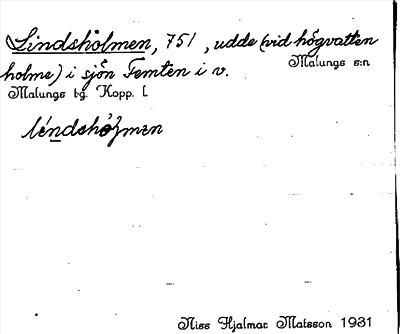 Lindsholmen, 751, udde (vid högvatten
Malungs s:n
holme) i sjön Femten i v.
Malungs tg. Kopp. l.
Niss Hjalmar Matsson 1931